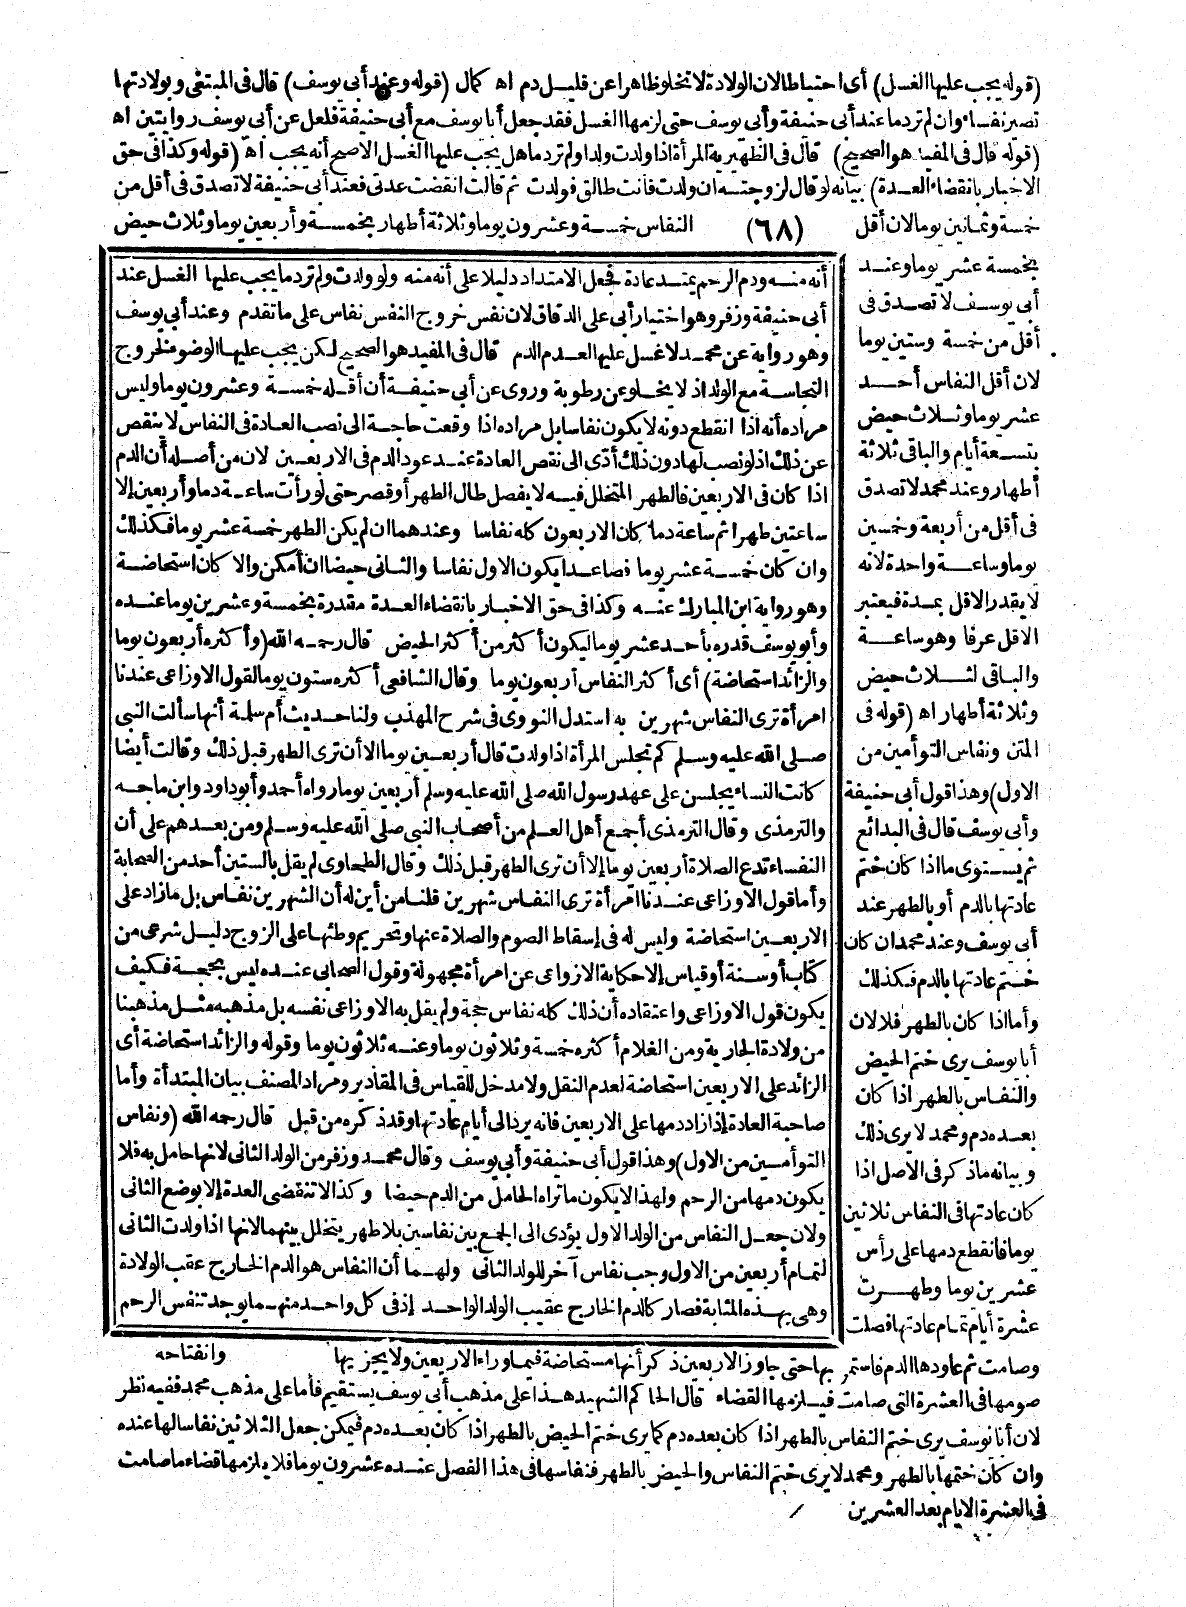 (قوله يجب عليها الغسل) أى احتياطا لان الولادة لا تخلو ظاهرا عن قليل دم اه كمال (قوله وعند أبى يوسف) قال فى المبتغى وبولادتها
تصير نفساء وان لم تر دما عند أبى حنيفة وأبى يوسف حتى لزمها الغسل فقد جعل أبا يوسف مع أبى حنيفة فلعل عن أبى يوسف روايتين اه
(قوله قال فى المفيد هو الصحيح) قال فى الظهيرية المرأة اذا ولدت ولدا ولم تر دما هل يجب عليها الغسل الاصح أنه يجب اه (قوله وكذا فى حق
الاخبار بانقضاء العدة) بيانه لو قال لزوجته ان ولدت فأنت طالق فولدت ثم قالت انقضت عدتى فعند أبى حنيفة لا تصدق فى أقل من
خمسة وثمانين يوما لان أقل (٦٨) النفاس خمسة وعشرون يوما وثلاثة أطهار بخمسة وأربعين يوما وثلاث حيض
بخمسة عشر يوما وعند
أبى يوسف لا تصدق فى
أقل من خمسة وستين يوما
لان أقل النفاس أحد
عشر يوما وثلاث حيض
بتسعة أيام والباقى ثلاثة
أطهار وعند محمد لا تصدق
فى أقل من أربعة وخمسين
يوما وساعة واحدة لانه
لا يقدر الاقل بمدة فيعتبر
الاقل عرفا وهو ساعة
والباقى لثلاث حيض
وثلاثة أطهار اه (قوله فى
المتن ونفاس التوأمين من
الاول) وهذا قول أبى حنيفة
وأبى يوسف قال فى البدائع
ثم يستوى ما اذا كان ختم
عادتها بالدم أو بالطهر عند
أبى يوسف وعند محمد ان كان
ختم عادتها بالدم فكذلك
وأما اذا كان بالطهر فلا لان
أبا يوسف يرى ختم الحيض
والنفاس بالطهر اذا كان
بعده دم ومحمد لا يرى ذلك
وبيانه ما ذكر فى الاصل اذا
كان عادتها فى النفاس ثلاثين
يوما فانقطع دمها على رأس
عشرين يوما وطهرت
عشرة أيام تمام عادتها فصلت
أنه منه ودم الرحم يمتد عادة فجعل الامتداد دليلا على أنه منه ولو ولدت ولم تر دما يجب عليها الغسل عند
أبى حنيفة وزفر وهو اختيار أبى على الدقاق لان نفس خروج النفس نفاس على ما تقدم وعند أبى يوسف
وهو رواية عن محمد لا غسل عليها لعدم الدم قال فى المفيد هو الصحيح لكن يجب عليها الوضوء لخروج
النجاسة مع الولد اذ لا يخلو عن رطوبة وروى عن أبى حنيفة أن أقله خمسة وعشرون يوما وليس
مراده أنه اذا انقطع دونه لا يكون نفاسا بل مراده اذا وقعت حاجة الى نصب العادة فى النفاس لا ينقص
عن ذلك اذ لو نصب لها دون ذلك أدى الى نقص العادة عند عود الدم فى الاربعين لان من أصله أن الدم
اذا كان فى الاربعين فالطهر المتخلل فيه لا يفصل طال الطهر أو قصر حتى لو رأت ساعة دما وأربعين إلا
ساعتين طهرا ثم ساعة دما كان الاربعون كله نفاسا وعندهما ان لم يكن الطهر خمسة عشر يوما فكذلك
وان كان خمسة عشر يوما فصاعدا يكون الاول نفاسا والثانى حيضا ان أمكن والا كان استحاضة
وهو رواية ابن المبارك عنه وكذا فى حق الاخبار بانقضاء العدة مقدرة بخمسة وعشرين يوما عنده
وأبو يوسف قدره بأحد عشر يوما ليكون أكثر من أكثر الحيض قال رحمه الله (وأكثره أربعون يوما
والزائد استحاضة) أى أكثر النفاس أربعون يوما وقال الشافعى أكثره ستون يوما لقول الاوزاعى عندنا
امرأة ترى النفاس شهرين به استدل النووى فى شرح المهذب ولنا حديث أم سلمة أنها سألت النبى
صلى الله عليه وسلم كم تجلس المرأة اذا ولدت قال أربعين يوما الا أن ترى الطهر قبل ذلك وقالت أيضا
كانت النساء يجلسن على عهد رسول الله صلى الله عليه وسلم أربعين يوما رواه أحمد وأبو داود وابن ماجه
والترمذى وقال الترمذى أجمع أهل العلم من أصحاب النبى صلى الله عليه وسلم ومن بعدهم على أن
النفساء تدع الصلاة أربعين يوما إلا أن ترى الطهر قبل ذلك وقال الطحاوى لم يقل بالستين أحد من الصحابة
وأما قول الاوزاعى عندنا امرأة ترى النفاس شهرين قلنا من أين له أن الشهرين نفاس بل ما زاد على
الاربعين استحاضة وليس له فى إسقاط الصوم والصلاة عنها وتحريم وطئها على الزوج دليل شرعى من
كتاب أو سنة أو قياس إلا حكاية الاوزاعى عن امرأة مجهولة وقول الصحابى عنده ليس بحجة فكيف
يكون قول الاوزاعى واعتقاده أن ذلك كله نفاس حجة ولم يقل به الاوزاعى نفسه بل مذهبه مثل مذهبنا
من ولادة الجارية ومن الغلام أكثره خمسة وثلاثون يوما وعنه ثلاثون يوما وقوله والزائد استحاضة أى
الزائد على الاربعين استحاضة لعدم النقل ولا مدخل للقياس فى المقادير ومراد المصنف بيان المبتدأة وأما
صاحبة العادة إذا زاد دمها على الاربعين فانه يرد الى أيام عادتها وقد ذكره من قبل قال رحمه الله (ونفاس
التوأمين من الاول) وهذا قول أبى حنيفة وأبى يوسف وقال محمد وزفر من الولد الثانى لانها حامل به فلا
يكون دمها من الرحم ولهذا لا يكون ما تراه الحامل من الدم حيضا وكذا لا تنقضى العدة إلا بوضع الثانى
ولان جعل النفاس من الولد الاول يؤدى الى الجمع بين نفاسين بلا طهر يتخلل بينهما لانها اذا ولدت الثانى
لتمام أربعين من الاول وجب نفاس آخر للولد الثانى ولهما أن النفاس هو الدم الخارج عقب الولادة
وهى بهذه المثابة فصار كالدم الخارج عقيب الولد الواحد إذ فى كل واحد منهما يوجد تنفس الرحم
وانفتاحه
وصامت ثم عاودها الدم فاستمر بها حتى جاوز الاربعين ذكر أنها مستحاضة فيما وراء الاربعين ولا يجزيها
صومها فى العشرة التى صامت فيلزمها القضاء قال الحاكم الشهيد هذا على مذهب أبى يوسف يستقيم فأما على مذهب محمد ففيه نظر
لان أبا يوسف يرى ختم النفاس بالطهر اذا كان بعده دم كما يرى ختم الحيض بالطهر اذا كان بعده دم فيمكن جعل الثلاثين نفاسا لها عنده
وان كان ختمها بالطهر ومحمد لا يرى ختم النفاس والحيض بالطهر فنفاسها فى هذا الفصل عنده عشرون يوما فلا يلزمها قضاء ما صامت
فى العشرة الايام بعد العشرين